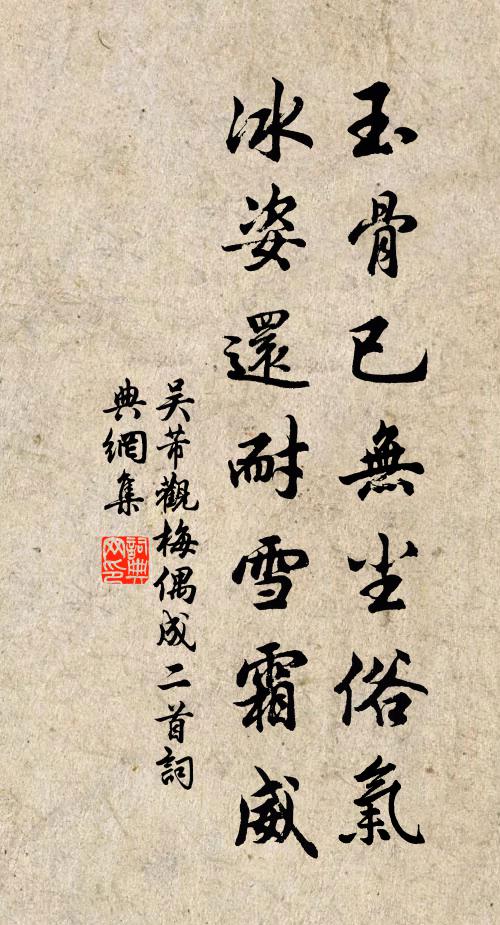 玉骨已無尘俗氣
冰姿還耐雪霜威
吴芾觀梅偶成二首詞
典網集
詞典
网印